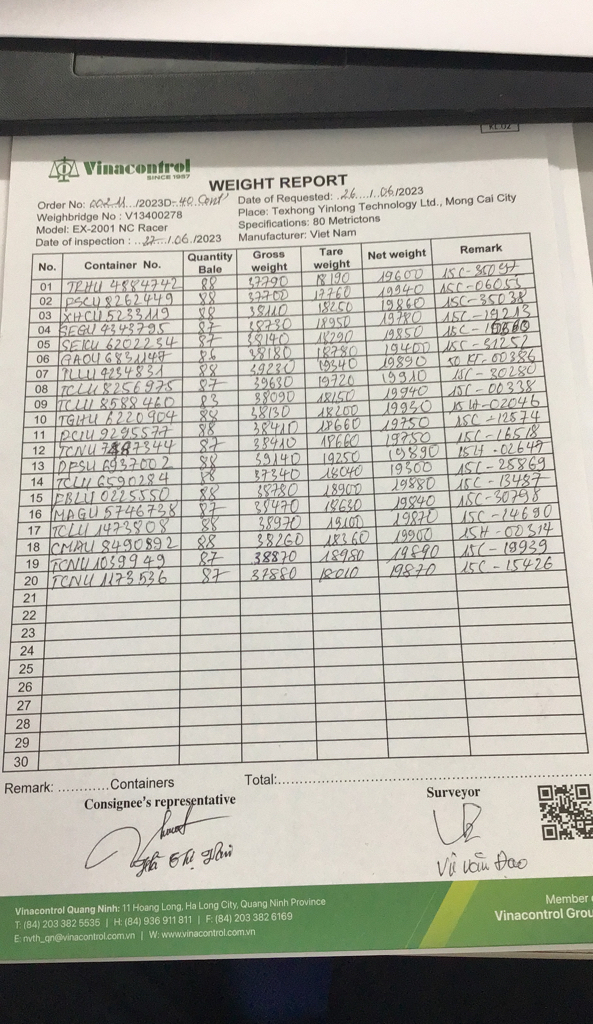 Vinacontrol
SINCE 1957
WEIGHT REPORT
Order No: 002.11 /2023D-40 Cont'
Date of Requested: 26 / 06/2023
Weighbridge No : V13400278
Place: Texhong Yinlong Technology Ltd., Mong Cai City
Model: EX-2001 NC Racer
Specifications: 80 Metrictons
Date of inspection : 27 / 06 /2023
Manufacturer: Viet Nam
No. Container No. Quantity Bale Gross weight Tare weight Net weight Remark
01 TRHU 4884742 88 37790 18190 19600
02 8262449 88 37700 17760 19940 15C-06053
03 XHCU 5233119 88 38110 18250 19860 15C-35038
04 SEGU 4343795 87 38730 18950 19780 15C-19213
05 6202234 87 38140 18290 19850
06 GAOU 6831147 86 38180 18780 19400 15C-31252
07 9234831 88 39230 19340 19890 00386
08 TCLU 8256975 87 39630 19720 19910 15C-80280
09 TCLU 8588460 83 38090 18150 19940 15C-00338
10 TGHU 6220904 88 38130 18200 19930 02046
11 9295577 88 38410 18660 19750 15C-12874
12 TCNU 87 38410 18660 19750 15C-16518
13 6937002 88 39140 19250 19890 02647
14 TCLU 6590284 88 37340 18040 19300 15C-25869
15 0225550 88 38780 18900 19880 15C-13487
16 MAGU 5746738 87 38470 18630 19840 15C-30798
17 TCLU 1473808 88 38970 19100 19870 15C-14690
18 CMAU 8490892 88 38260 18360 19900 15H-00314
19 TCNU 1039949 87 38870 18980 19890 15C-19939
20 TCNU 1173536 87 37880 18010 19870 15C-15426
21
22
23
24
25
26
27
28
29
30
Remark: ............Containers
Total:
Consignee's representative
Surveyor
Vũ Văn Đạo
Vinacontrol Quang Ninh: 11 Hoang Long, Ha Long City, Quang Ninh Province
T: (84) 203 382 5535 | H: (84) 936 911 811 | F: (84) 203 382 6169
E: nvth_qn@vinacontrol.com.vn | W: www.vinacontrol.com.vn
Member
Vinacontrol Grou